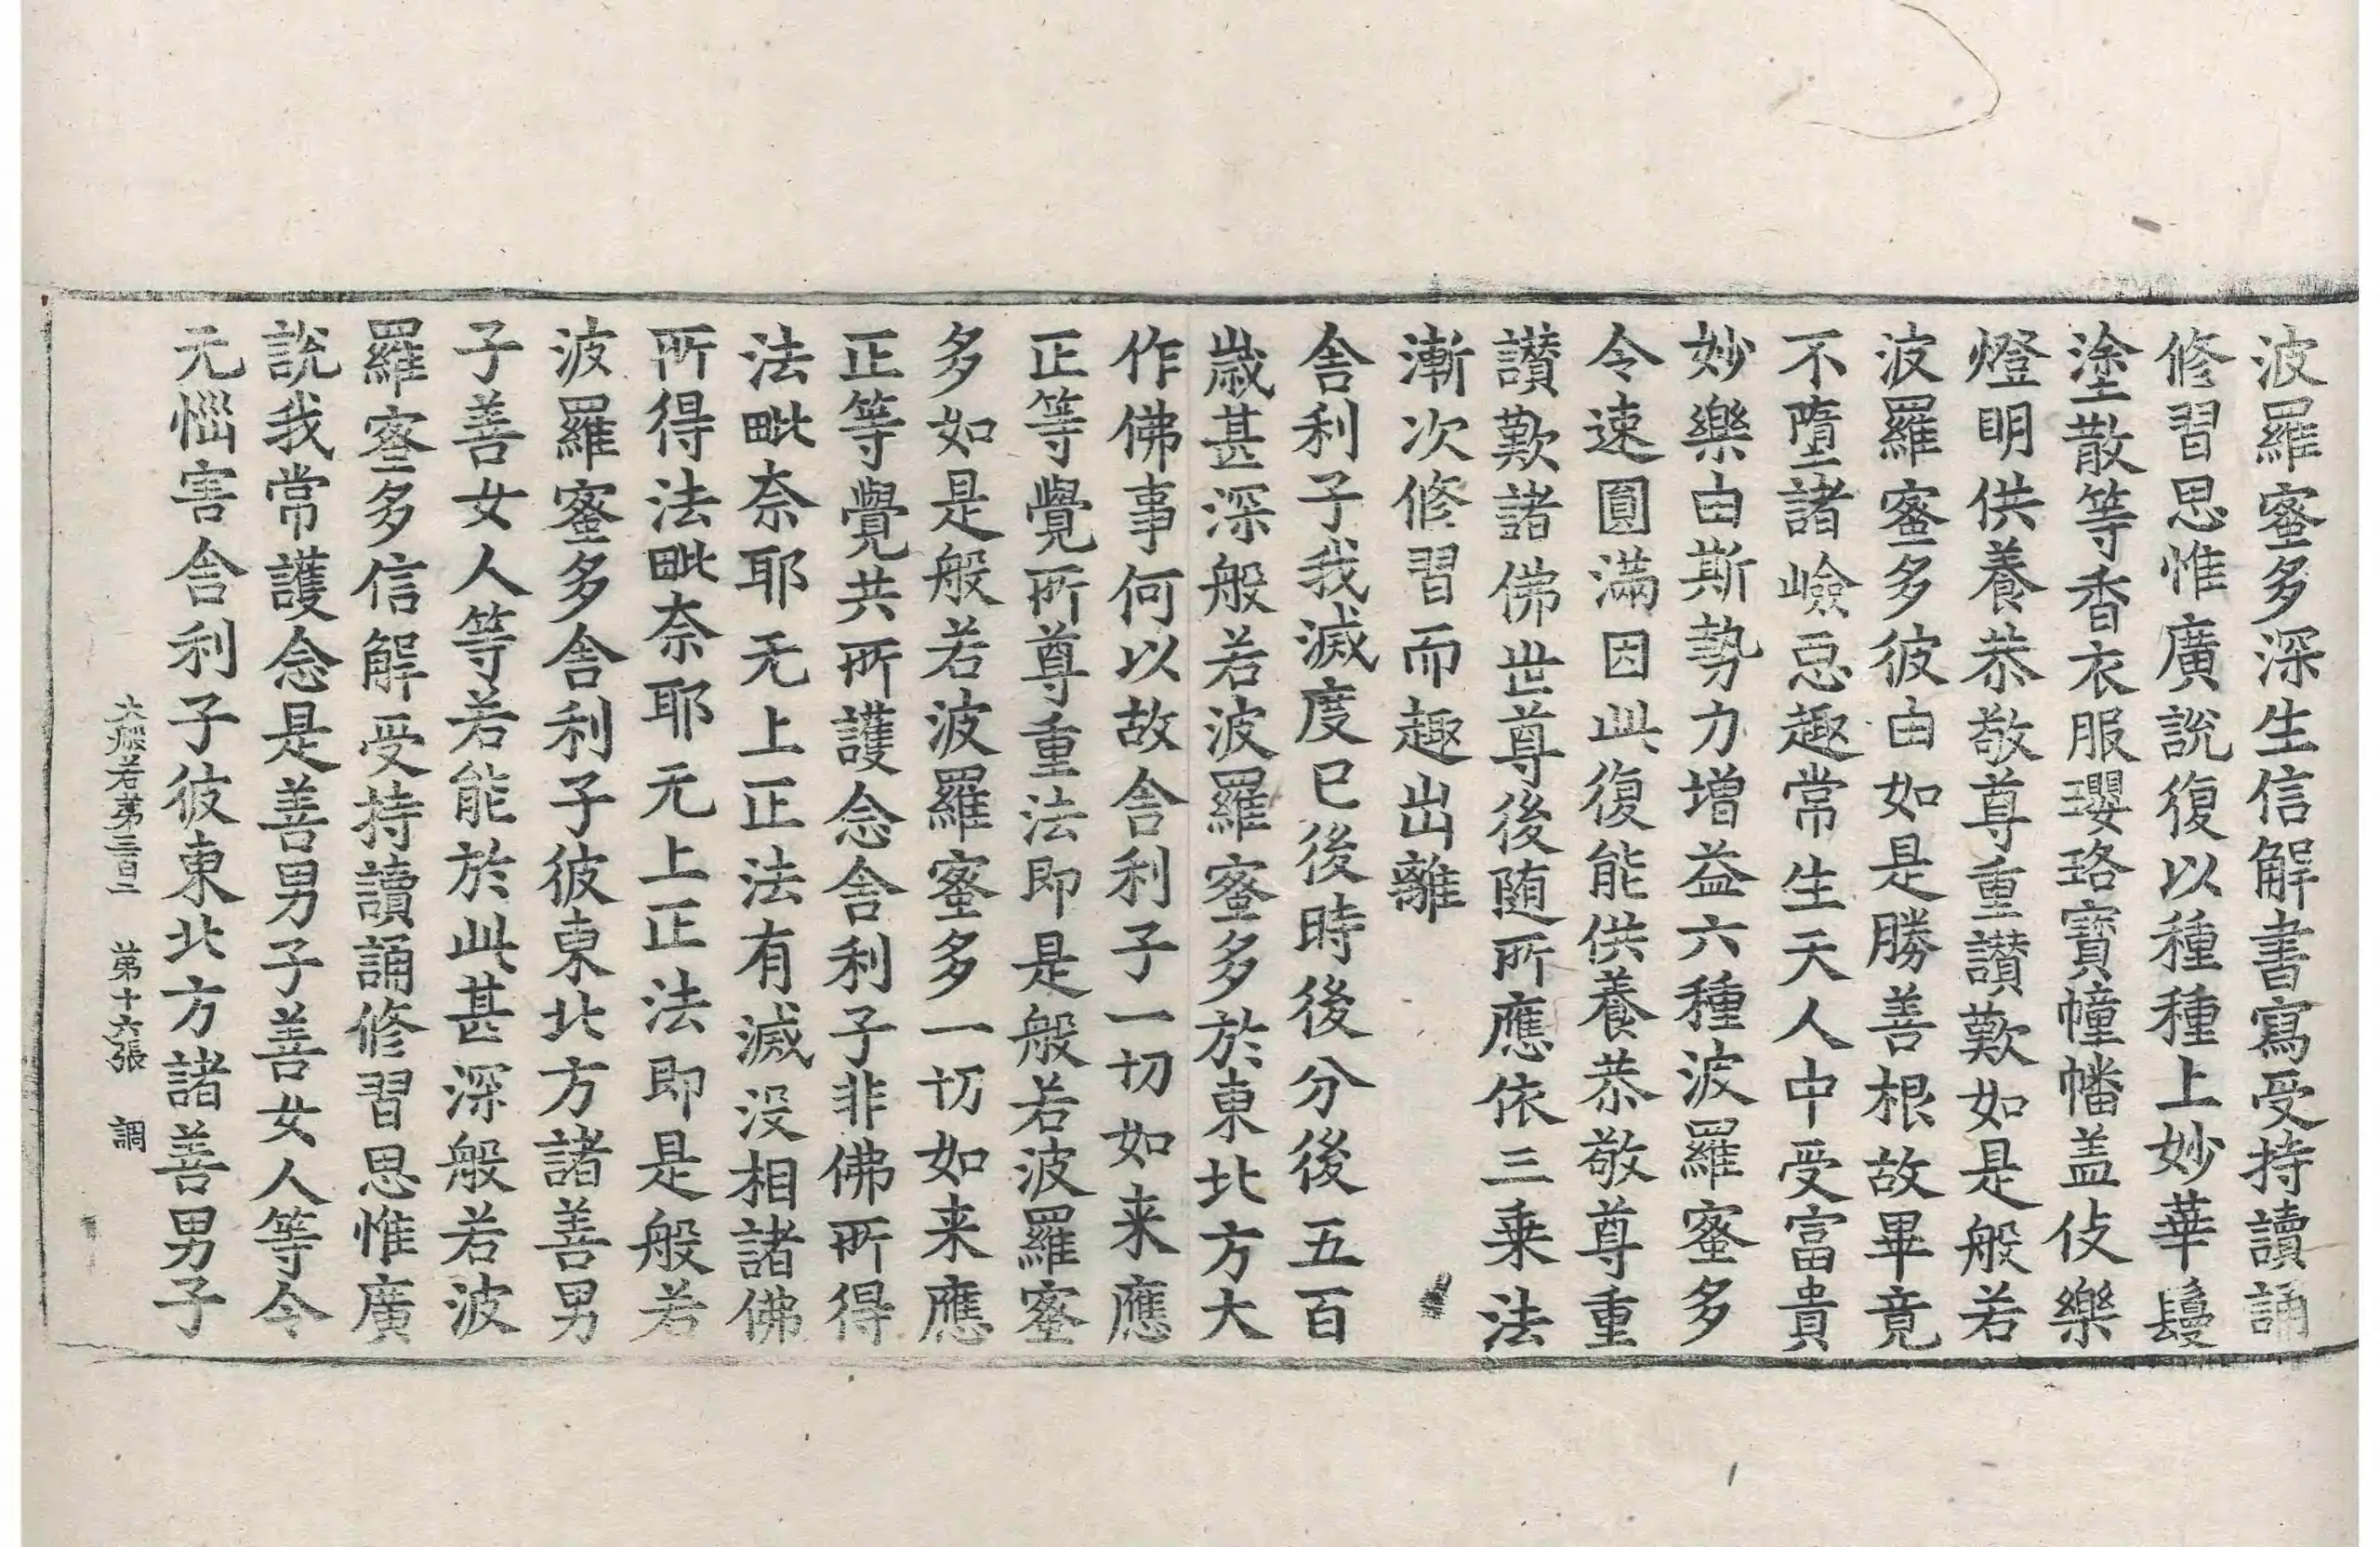 波羅蜜多深生信解書寫受持讀誦
修習思惟廣說復以種種上妙華鬘
塗散等香衣服瓔珞寶幢幡盖伎樂
燈明供養恭敬尊重讃歎如是般若
波羅蜜多彼由如是勝善根故畢竟
不墮諸嶮惡趣常生天人中受富貴
妙樂由斯勢力增益六種波羅蜜多
令速圓滿因此復能供養恭敬尊重
讃歎諸佛世尊後随所應依三乗法
漸次修習而趣出離
舎利子我滅度已後時後分後五百
歳甚深般若波羅蜜多於東北方大
作佛事何以故舎利子一切如来應
正等覺所尊重法即是般若波羅蜜
多如是般若波羅蜜多一切如来應
正等覺共所護念舎利子非佛所得
法毗奈耶无上正法有滅没相諸佛
所得法毗奈耶无上正法即是般若
波羅蜜多舎利子彼東北方諸善男
子善女人等若能於此甚深般若波
羅蜜多信解受持讀誦修習思惟廣
說我常護念是善男子善女人等令
无惱害舎利子彼東北方諸善男子
大般若苐三百二 苐十六張 調